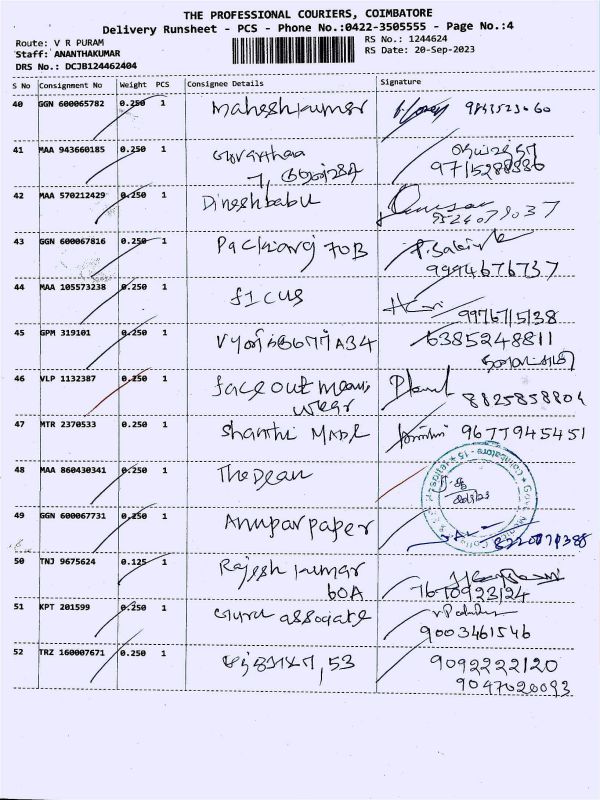 THE PROFESSIONAL COURIERS, COIMBATORE
Delivery Runsheet - PCS - Phone No.:0422-3505555 - Page No.:4
Route: V R PURAM
RS No.: 1244624
Staff: ANANTHAKUMAR
RS Date: 20-Sep-2023
DRS No.: DCJB124462404
S No Consignment No Weight PCS Consignee Details Signature
40 GGN 600065782 0.250 1 Maheshkumar
41 MAA 943660185 0.250 1
9715288880
42 MAA 570212429 0.250 1 Dineshbabu
9524079037
43 GGN 600067816 0.250 1 Packiaraj 70B
9994676737
44 MAA 105573238 0.250 1 ficus
9976715138
45 GPM 319101 0.250 1 A34 6385248811
46 VLP 1132387 0.250 1 face out mens
wear 8825858804
47 MTR 2370533 0.250 1 Shanthi 9677945451
48 MAA 860430341 0.250 1 The Dean
49 GGN 600067731 0.250 1 Anupar paper
8220079388
50 TNJ 9675624 0.125 1 Rajesh kumar
60A 7610923124
51 KPT 201599 0.250 1 Guru associate
9003461546
52 TRZ 160007671 0.250 1 , 53 9092222120
9047020093